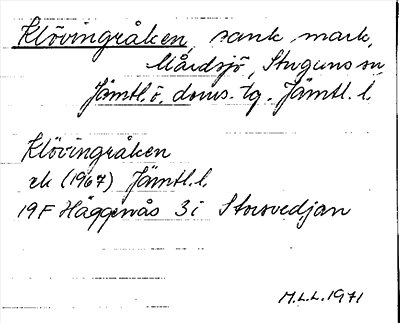 Klövingråken, sank mark,
Mårdsjö, Stuguns sn,
Jämtl. ö. doms. tg. Jämtl. l.
Klövingråken
ek (1967) Jämtl. l.
19F Häggenås 3i Storvedjan
M.L.L. 1971